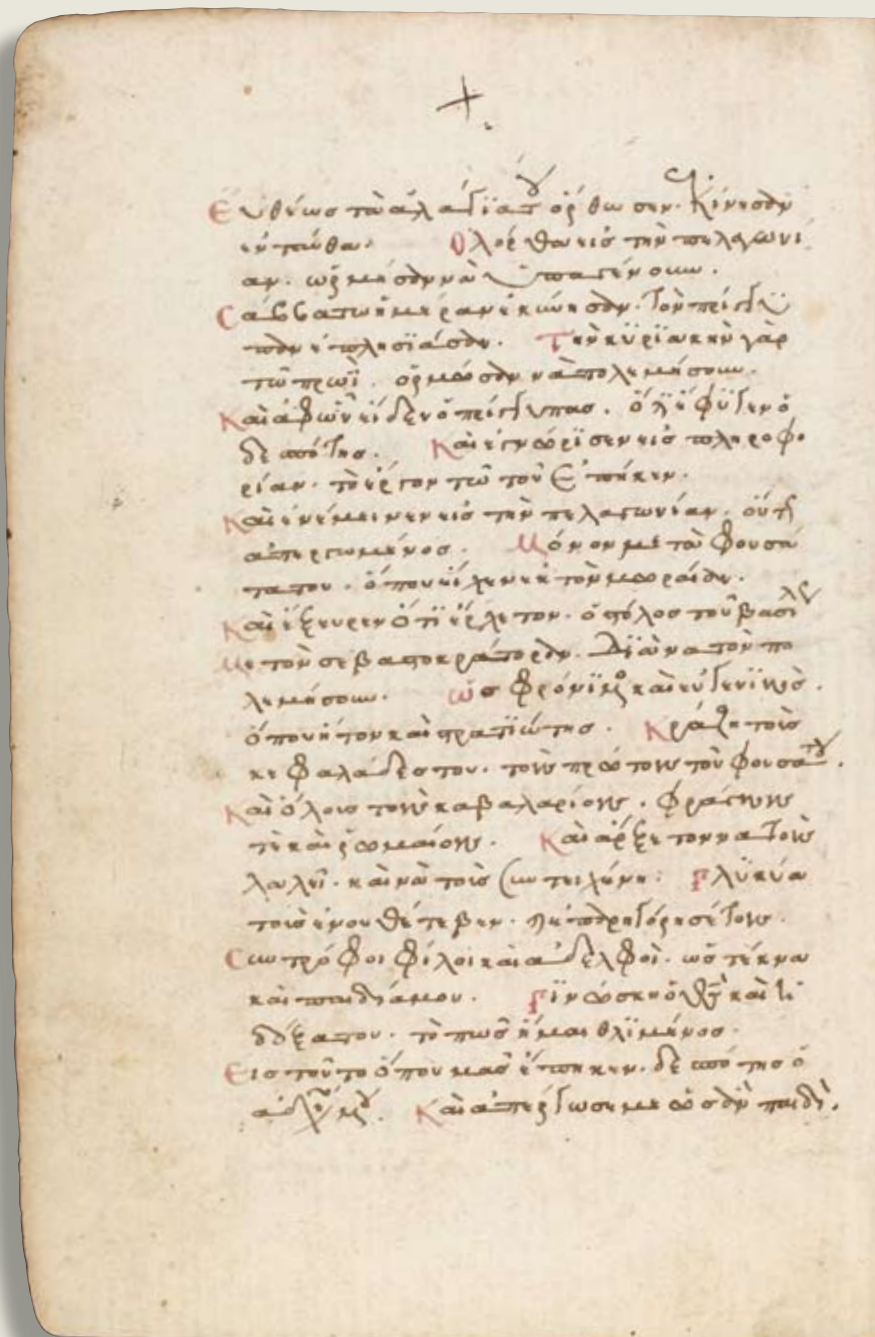 +
Εὐθέως τὰ ἀλάγϊα του ὀρθωσεν. Κίνησαν
ἐνταῦθα. Ὁλόρθα εἰς τὴν πελαγωνί
αν. ὡρμησαν νὰ ὑπαγένουν.
Σάββατω ἡμέραν ἐκίνησαν. Τὸν πρίγγϋ
παν ἐπλησϊάσαν. Τὴν κϋρϊακὴν γὰρ
τῶ πρωῒ. ὁρμώσαν νὰ πολεμήσουν.
Καὶ ἀφῶν εἶδεν ὁ πρίγγυπας. ὅτι ἔφϋγεν ὁ
δεσπότης. Καὶ ἐγνώρϊσεν εἰς πληροφο
ρίαν. τὸ ἔργον τῶ τοῦ ἔπηκεν.
Καὶ ἐνέμεινεν εἰς τὴν πελαγωνίαν. οὕτως
απεργωμένος. Μόνον με τὰ φουσά
τα του. ὁποῦ εἶχεν ἐκ τὸν μωραίαν.
Καὶ ἔξευρεν ὅτϊ ἔρχετον. ὁ στόλος τοῦ βασιλέως
Με τὸν σεβαστοκράτοραν. Δϊὰ νὰ τὸν πο
λεμήσουν. Ὡς φρόνϊμος καὶ εὐγενϊκὸς.
ὁποῦ ἦτον καὶ στρατϊώτης. Κράζη τοὺς
κεφαλάδες του. τοὺς πρώτους τοῦ φουσάτου.
Καὶ ὅλους τοὺς καβαλαρίους. φράγκους
τὲ καὶ ῥωμαίους. Καὶ ἄρξετον να τοὺς
λαλεῖ. καὶ νὰ τοὺς συντειχένη: Γλϋκύα
τοὺς ἐνουθέτεβεν. καὶ ἐπαρηγόρησέ τους.
Συντρόφοι φίλοι καὶ ἀδελφοὶ. ὡς τέκνα
καὶ παιδία μου. Γϊνώσκη ὁ θεὸς καὶ ἡ
δόξα του. τὸ πῶς ἦμαι θλϊμένος.
Εἰς τοῦτο ὁποῦ μᾶς ἔπηκεν. δεσπότης ὁ
ἀδελφός μου. Καὶ ἀπέργωσέ με ὡσὰν παιδὶ.